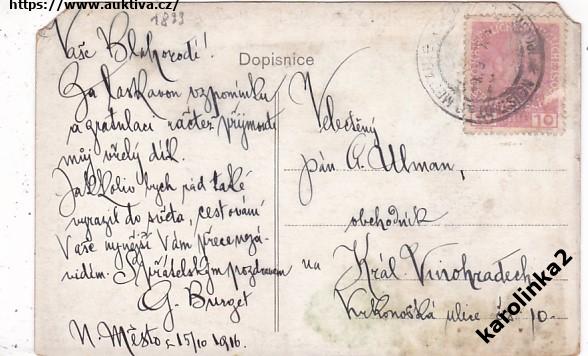 https://www.auktiva.cz/
1899
Dopisnice
Vaše Blahorodí!
Za laskavou vzpomínku
a gratulaci račtež přijmouti
můj vřelý dík.
Jakkoliv bych rád také
vyrazil do světa, cestování
Vaše nynější Vám přece nezá-
vidím. S přátelským pozdravem
G. Burget
N. Město, 15/10 1916.
Velectěný
pán A. Ulman,
obchodník
na Král Vinohradech
Krkonošská ulice čís 10-
10
karolinka2